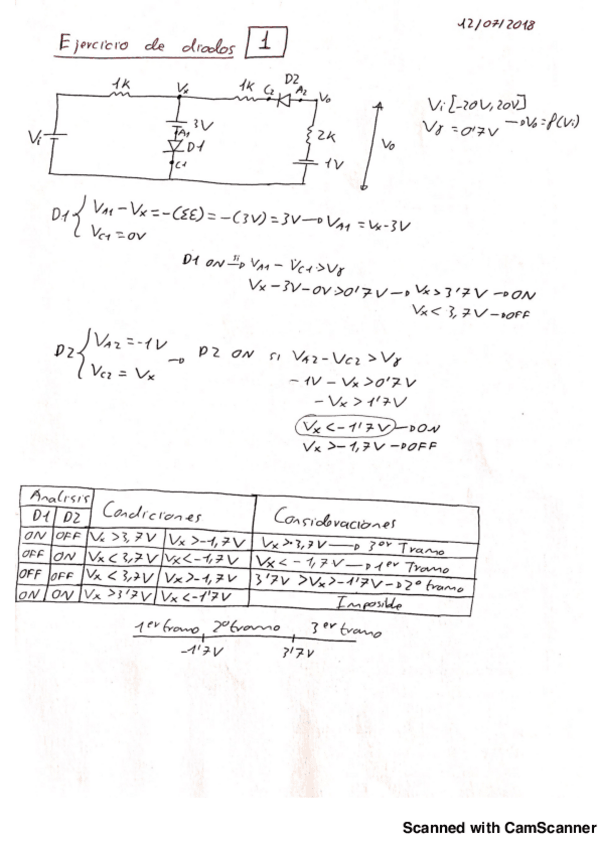 12/07/2018
Ejercicio de diodos 1
1K Vx 1K C2 D2 A2 Vo
3V
A1
D1
C1
Vi
2K
1V
Vo
Vi [-20V, 20V]
Vγ = 0'7V → Vo = f(Vi)
D1 { VA1 - Vx = -(ΣE) = -(3V) = 3V → VA1 = Vx - 3V
VC1 = 0V
D1 ON si→ VA1 - VC1 > Vγ
Vx - 3V - 0V > 0'7V → Vx > 3'7V → ON
Vx < 3,7V → OFF
D2 { VA2 = -1V
VC2 = Vx
→ D2 ON si VA2 - VC2 > Vγ
-1V - Vx > 0'7V
-Vx > 1'7V
Vx < -1'7V → ON
Vx > -1,7V → OFF
Analisis Condiciones Consideraciones
D1 D2
ON OFF Vx > 3,7V Vx > -1,7V Vx > 3,7V → 3er Tramo
OFF ON Vx < 3,7V Vx < -1,7V Vx < -1,7V → 1er Tramo
OFF OFF Vx < 3,7V Vx > -1,7V 3'7V > Vx > -1'7V → 2º tramo
ON ON Vx > 3'7V Vx < -1'7V Imposible
1er tramo 2º tramo 3er tramo
-1'7V 3'7V
Scanned with CamScanner